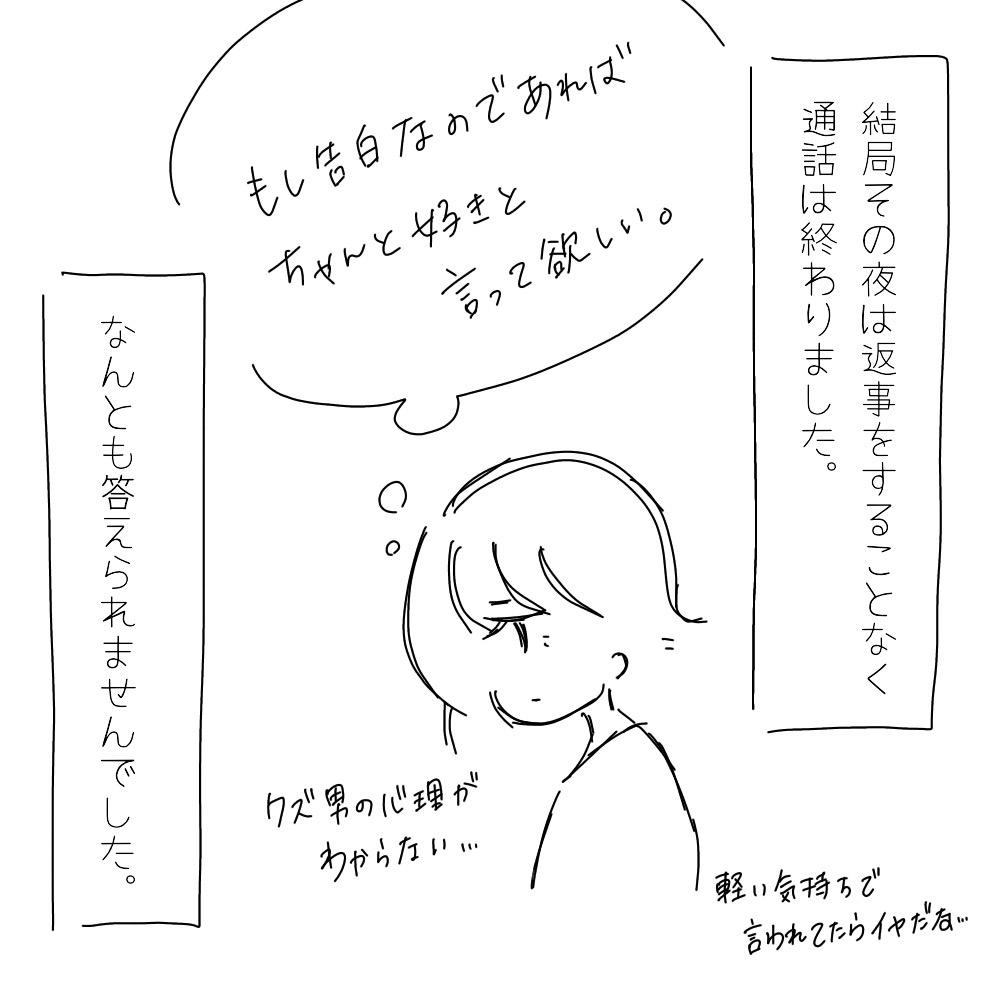 結局その夜は返事をすることなく
通話は終わりました。
もし告白なのであれば
ちゃんと好きと
言って欲しい。
なんとも答えられませんでした。
クズ男の心理が
わからない…
軽い気持ちで
言われてたらイヤだな…